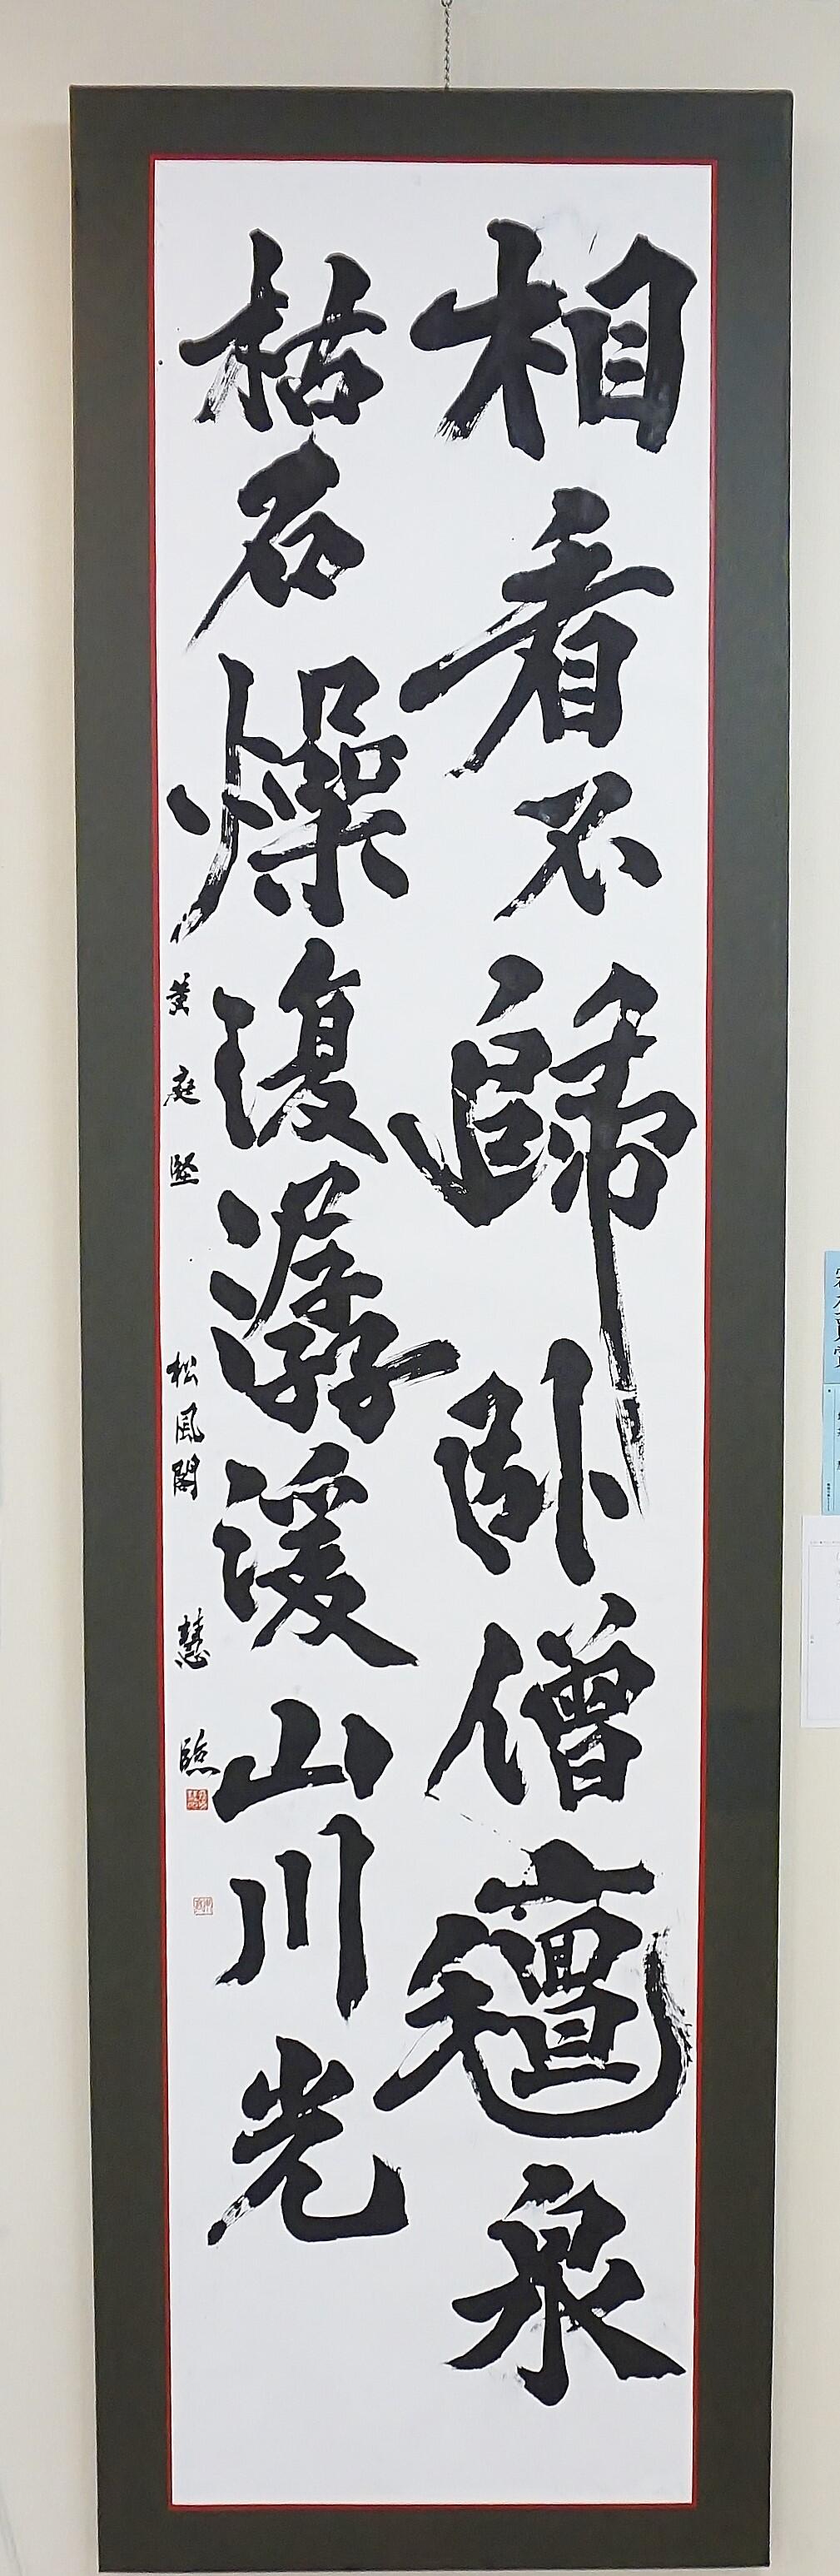 相看不歸臥僧氊泉
枯石燥復潺湲山川光
黄庭堅 松風閣 慧臨